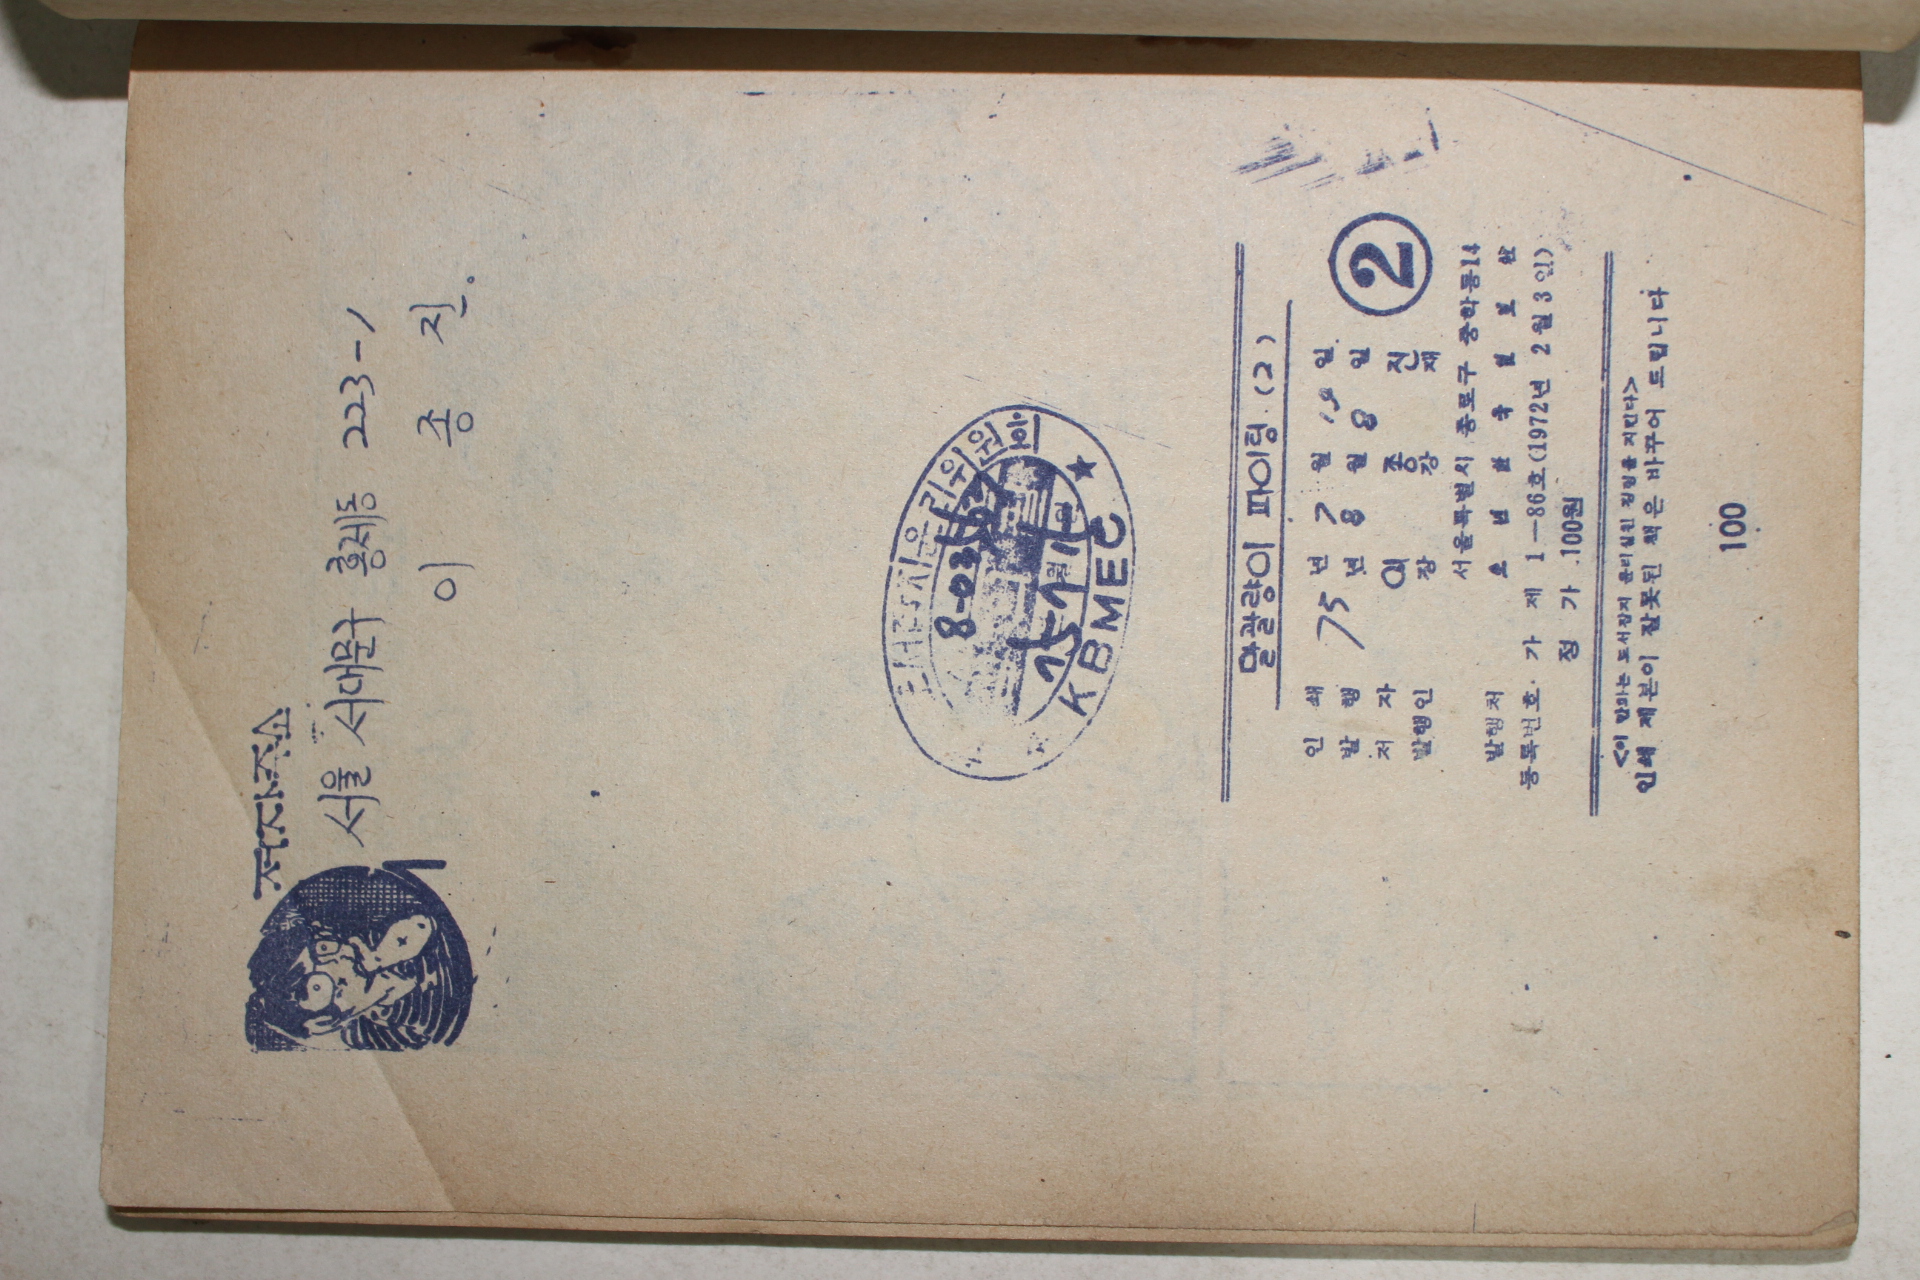 저자주소
서울 서대문구 홍제동 223-1
이 종 진.
한국도서잡지윤리위원회
KBMEC
말괄량이 파이팅 (2)
②
인 쇄 75년 7월 일
발 행 년 8월 8일
저 자 이 종 진
발행인 장 장 재
서울특별시 종로구 중학동14
발행처 소년한국일보
등록번호 가 제 1-86호(1972년 2월 3일)
정 가 100원
<이 만화는 도서잡지 윤리실천 강령을 지킨다>
인쇄 제본이 잘못된 책은 바꾸어 드립니다
100